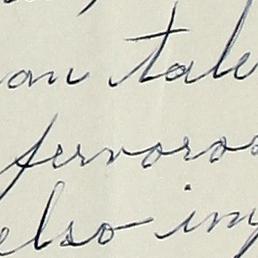 on tale
fervoros
elso im